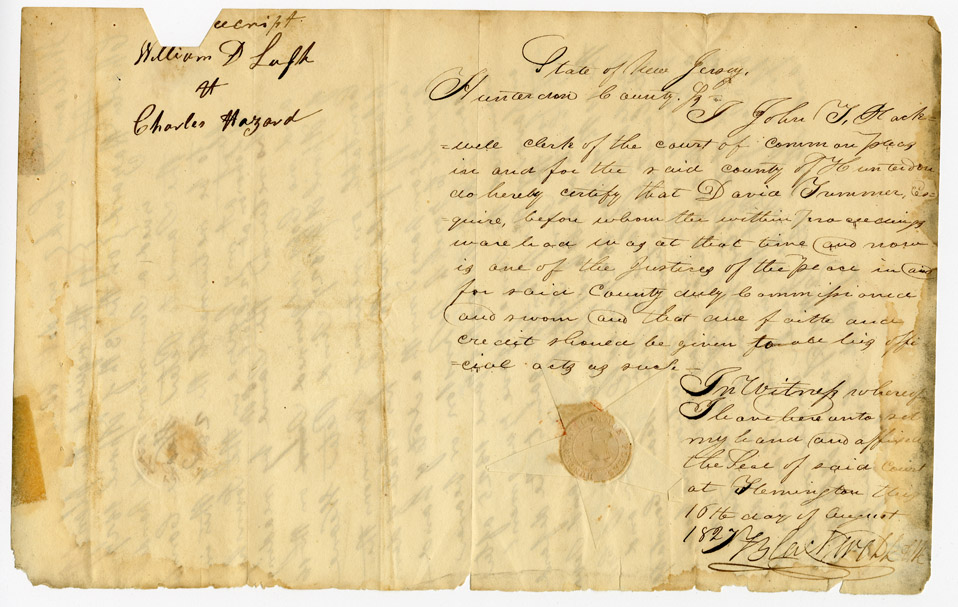 William D Lush
At
Charles Hazard
State of New Jersey,
Hunterdon County. Ss
I John T. Black=
=well clerk of the court of common pleas
in and for the said county of Hunterdon
do hereby certify that David Summer, Es=
=quire, before whom the within proceedings
ware had was at that time and now
is one of the Justices of the peace in and
for said County duly Commissioned
and sworn and that due faith and
credit should be given to all his offi
=cial acts as such
In Witness whereof
I have here unto set
my hand and affixed
the Seal of said Court
at Flemington this
16th day of August
1827